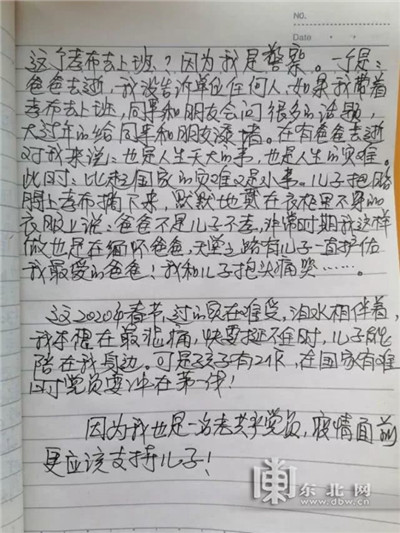 NO.
Date
这个孝布去上班？因为我是警察。一是：
爸爸去逝，我没告诉单位任何人，如果我带着
孝布去上班，同事和朋友会问很多的话题，
大过年的给同事和朋友添堵。在有爸爸去逝
对我来说：也是人生天大的事，也是人生的灾难。
此时：比起国家的灾难又是小事。儿子把胳
膊上孝布摘下来，默默地戴在衣柜里不穿的
衣服上说：爸爸不是儿子不孝，非常时期我这样
做也是在缅怀爸爸，天堂之路有儿子一直护佑
我最爱的爸爸！我和儿子抱头痛哭……。
这2020年春节，过的实在难受，泪水相伴着，
我本想在最悲痛，快要挺不住时，儿子能
陪在我身边。可是孩子有21天，在国家有难
时党员要冲在第一线！
因为我也是一名老共产党员，疫情面前
更应该支持儿子！
东北网
www.dbw.cn